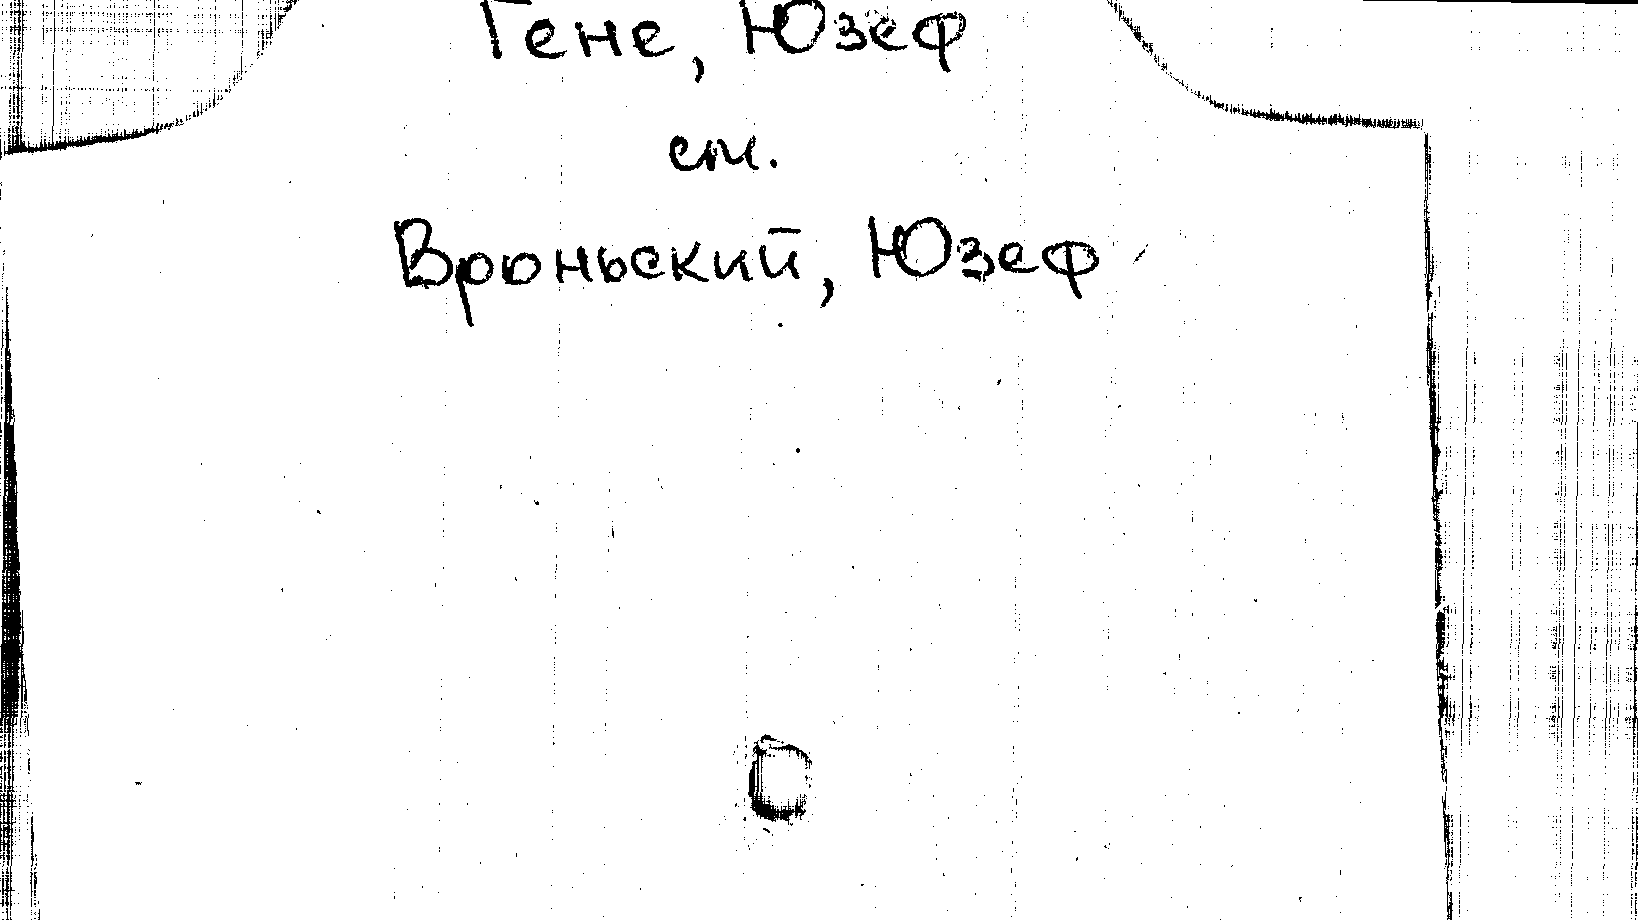 Гене, Юзеф
см.
Вроньский, Юзеф